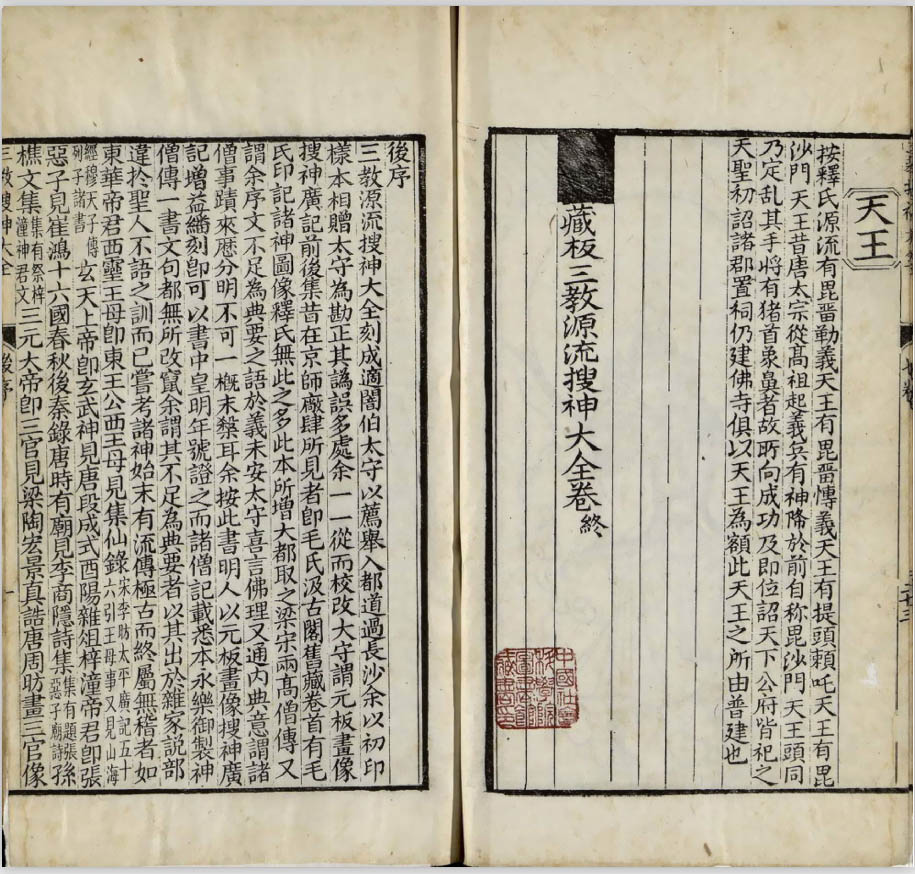 天王
按釋氏源流有毘畱勒義天王有毘畱愽義天王有提頭賴吒天王有毘
沙門天王昔唐太宗從髙祖起義兵有神降於前自称毘沙門天王頭同
乃定乱其手將有猪首象鼻者故所向成功及即位詔天下公府皆祀之
天聖初詔諸郡置祠仍建佛寺俱以天王為額此天王之所由普建也
藏板三教源流搜神大全卷終
後序
三敎源流搜神大全刻成適闇伯太守以薦舉入都道過長沙余以初印
樣本相贈太守為勘正其譌誤多處余一一從而校改大守謂元板畫像
搜神廣記前後集昔在京師廠肆所見者卽毛氏汲古閣舊藏卷首有毛
氏印記諸神圖像釋氏無此之多此本所增大都取之梁宋兩高僧傳又
謂余序文不足為典要之語於義未安太守喜言佛理又通內典意謂諸
僧事蹟來歷分明不可一槪末檠耳余按此書明人以元板畫像搜神廣
記增益繙刻卽可以書中皇明年號證之而諸僧記載悉本永樂御製神
僧傳一書文句都無所改竄余謂其不足為典要者以其出於雜家說部
違於聖人不語之訓而已嘗考諸神始末有流傳極古而終屬無稽者如
東華帝君西靈王母卽東王公西王母見集仙錄宋李昉太平廣記五十六引王母事又見山海
經穆天子傳列子諸書玄天上帝卽玄武神見唐段成式酉陽雜俎梓潼帝君卽張
惡子見崔鴻十六國春秋後秦錄唐時有廟見李商隱詩集集有題張惡子廟詩孫
樵文集集有祭梓潼神君文三元大帝卽三官見梁陶宏景真誥唐周昉畫三官像
三敎搜神大全
後序
一